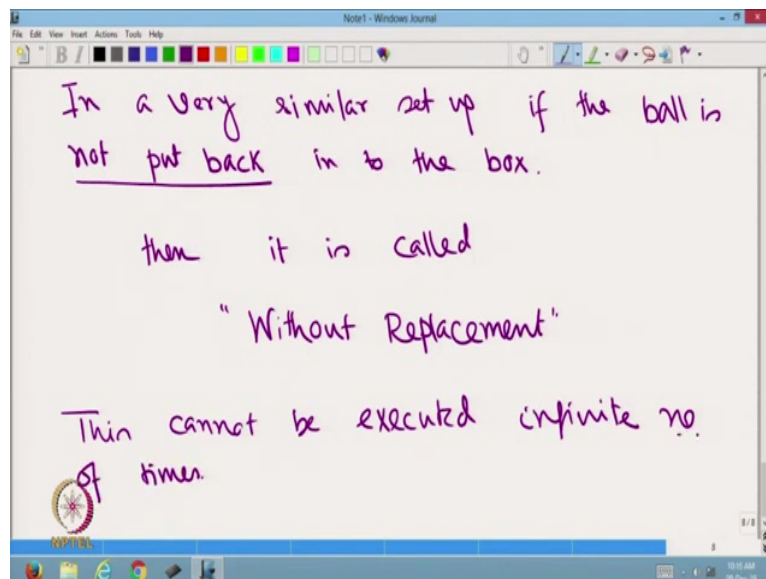 Note1 - Windows Journal
File Edit View Insert Actions Tools Help
In a very similar set up if the ball is
not put back in to the box.
then it is called
"Without Replacement"
This cannot be executed infinite no
of times.
NPTEL
8/8
8
10:15 AM